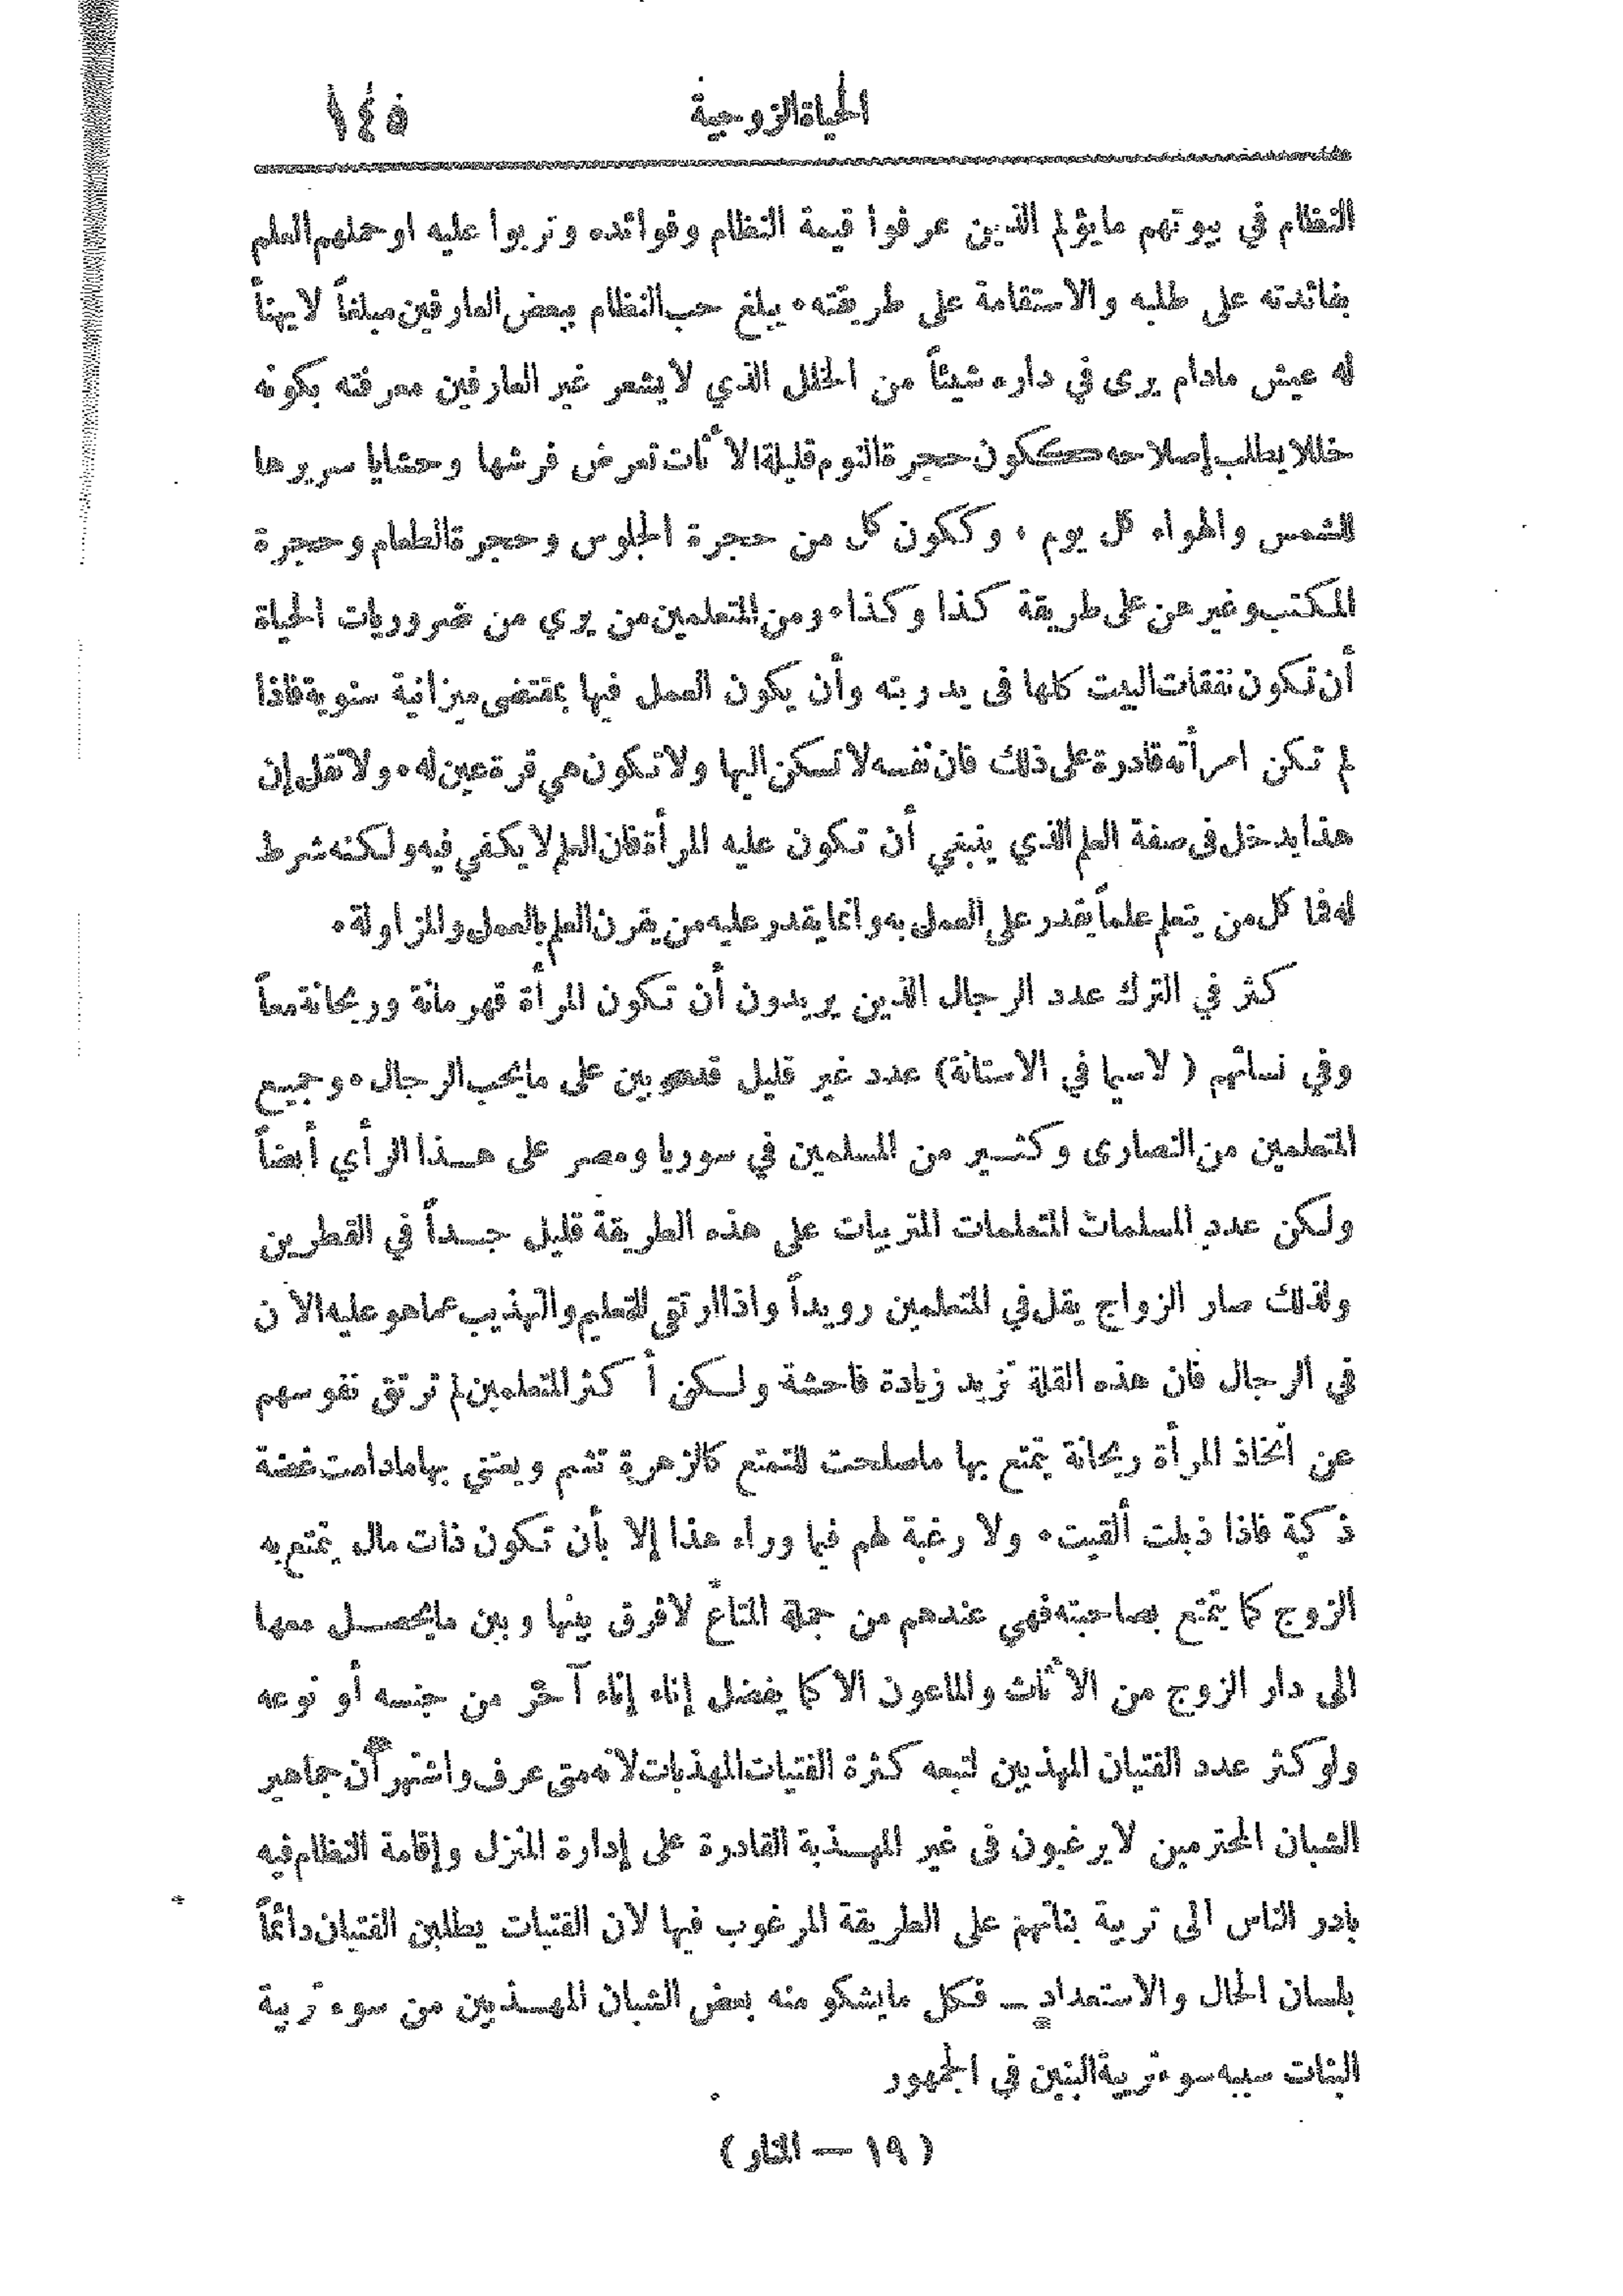 الحياة الزوجية ١٤٥
النظام في بيوتهم ما يؤلم الذين عرفوا قيمة النظام وفوائده وتربوا عليه او حملهم العلم
بفائدته على طلبه والاستقامة على طريقته . يبلغ حب النظام ببعض العارفين مبلغاً لا يهنأ
له عيش مادام يرى في داره شيئاً من الخلل الذي لا يشعر غير العارفين معرفته بكونه
خللا يطلب إصلاحه ككون حجرة النوم قليلة الأثاث تعرض فرشها وحشايا سريرها
للشمس والهواء كل يوم ، وككون كل من حجرة الجلوس وحجرة الطعام وحجرة
المكتب وغيرهن على طريقة كذا وكذا . ومن المتعلمين من يرى من ضروريات الحياة
أن تكون نفقات البيت كلها في يد ربته وأن يكون العمل فيها بمقتضى ميزانية سنوية فاذا
لم تكن امرأته قادرة على ذلك فان نفسه لا تسكن اليها ولا تكون هي قرة عين له . ولا تقل إن
هذا يدخل في صفة العلم الذي ينبغي أن تكون عليه المرأة فان العلم لا يكفي فيه ولكنه شرط
له فما كل من يتعلم علماً يقدر على العمل به وانما يقدر عليه من يقرن العلم بالعمل والمزاولة .
كثر في الترك عدد الرجال الذين يريدون أن تكون المرأة قهرمانة وريحانة معاً
وفي نسائهم ( لا سيما في الاستانة) عدد غير قليل قد ربين على ما يحب الرجال . وجميع
المتعلمين من النصارى وكثـير من المسلمين في سوريا ومصر على هـذا الرأي أيضاً
ولكن عدد المسلمات المتعلمات المتربيات على هذه الطريقة قليل جـداً في القطرين
ولذلك صار الزواج يقل في المتعلمين رويداً واذا ارتقى التعليم والتهذيب عما هو عليه الآن
في الرجال فان هذه القلة تزيد زيادة فاحشة ولـكن أكثر المتعلمين لم ترتق نفوسهم
عن اتخاذ المرأة ريحانة يتمتع بها ما صلحت للتمتع كالزهرة تشم ويعتنى بها مادامت غضة
ذكية فاذا ذبلت ألقيت . ولا رغبة لهم فيما وراء هذا إلا بأن تكون ذات مال يتمتع به
الزوج كما يتمتع بصاحبته فهي عندهم من جملة المتاع لا فرق بينها وبين ما يحصـل معها
الى دار الزوج من الأثاث والماعون الا كما يفضل إناء إناء آخر من جنسه أو نوعه
ولو كثر عدد الفتيان المهذبين لتبعه كثرة الفتيات المهذبات لانه متى عرف واشتهر أن جماهير
الشبان المحترمين لا يرغبون في غير المهـذبة القادرة على إدارة المنزل وإقامة النظام فيه
بادر الناس الى تربية بناتهم على الطريقة المرغوب فيها لان الفتيات يطلبن الفتيان دائماً
بلسان الحال والاستعداد ــ فكل ما يشكو منه بعض الشبان المهـذبين من سوء تربية
البنات سببه سوء تربية البنين في الجمهور
( ١٩ — المنار )